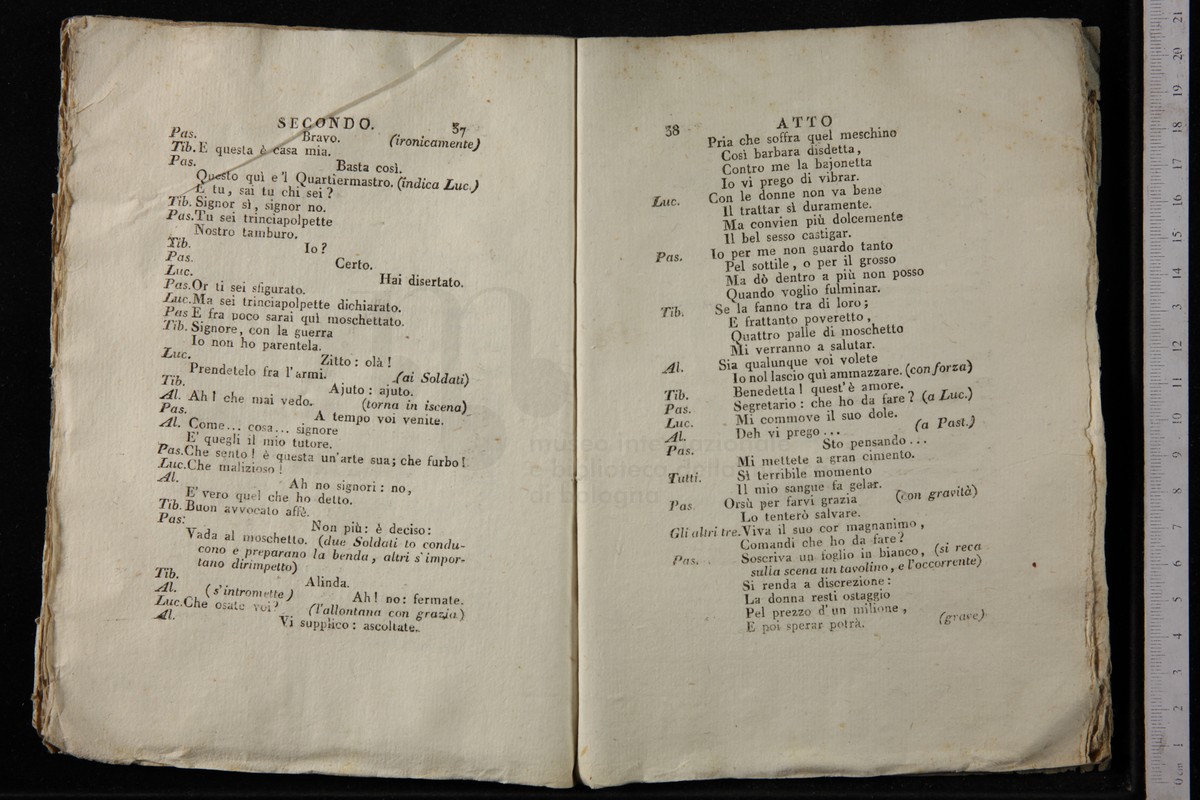 SECONDO. 37
Pas. Bravo. (ironicamente)
Tib. E questa è casa mia.
Pas. Basta così.
Questo quì e'l Quartiermastro. (indica Luc.)
E tu, sai tu chi sei?
Tib. Signor sì, signor no.
Pas. Tu sei trinciapolpette
Nostro tamburo.
Tib. Io?
Pas. Certo.
Luc. Hai disertato.
Pas. Or ti sei sfigurato.
Luc. Ma sei trinciapolpette dichiarato.
Pas E fra poco sarai quì moschettato.
Tib. Signore, con la guerra
Io non ho parentela.
Luc. Zitto: olà!
Prendetelo fra l'armi. (ai Soldati)
Tib. Ajuto: ajuto.
Al. Ah! che mai vedo. (torna in iscena)
Pas. A tempo voi venite.
Al. Come... cosa... signore
E' quegli il mio tutore.
Pas. Che sento! è questa un'arte sua; che furbo!
Luc. Che malizioso!
Al. Ah no signori: no,
E' vero quel che ho detto.
Tib. Buon avvocato affè.
Pas. Non più: è deciso:
Vada al moschetto. (due Soldati to condu-
cono e preparano la benda, altri s'impor-
tano dirimpetto)
Tib. Alinda.
Al. (s'intromette) Ah! no: fermate.
Luc. Che osate voi? (l'allontana con grazia)
Al. Vi supplico: ascoltate.
38 ATTO
Pria che soffra quel meschino
Così barbara disdetta,
Contro me la bajonetta
Io vi prego di vibrar.
Luc. Con le donne non va bene
Il trattar sì duramente.
Ma convien più dolcemente
Il bel sesso castigar.
Pas. Io per me non guardo tanto
Pel sottile, o per il grosso
Ma dò dentro a più non posso
Quando voglio fulminar.
Tib. Se la fanno tra di loro;
E frattanto poveretto,
Quattro palle di moschetto
Mi verranno a salutar.
Al. Sia qualunque voi volete
Io nol lascio quì ammazzare. (con forza)
Tib. Benedetta! quest'è amore.
Pas. Segretario: che ho da fare? (a Luc.)
Luc. Mi commove il suo dole.
Al. Deh vi prego... (a Past.)
Pas. Sto pensando...
Mi mettete a gran cimento.
Tutti. Sì terribile momento
Il mio sangue fa gelar.
Pas Orsù per farvi grazia (con gravità)
Lo tenterò salvare.
Gli altri tre. Viva il suo cor magnanimo,
Comandi che ho da fare?
Pas. Soscriva un foglio in bianco, (si reca
sulla scena un tavolino, e l'occorrente)
Si renda a discrezione:
La donna resti ostaggio
Pel prezzo d'un milione,
E poi sperar potrà. (grave)
museo internazionale
e biblioteca della
di bologna
0 cm 1 2 3 4 5 6 7 8 9 10 11 12 13 14 15 16 17 18 19 20 21